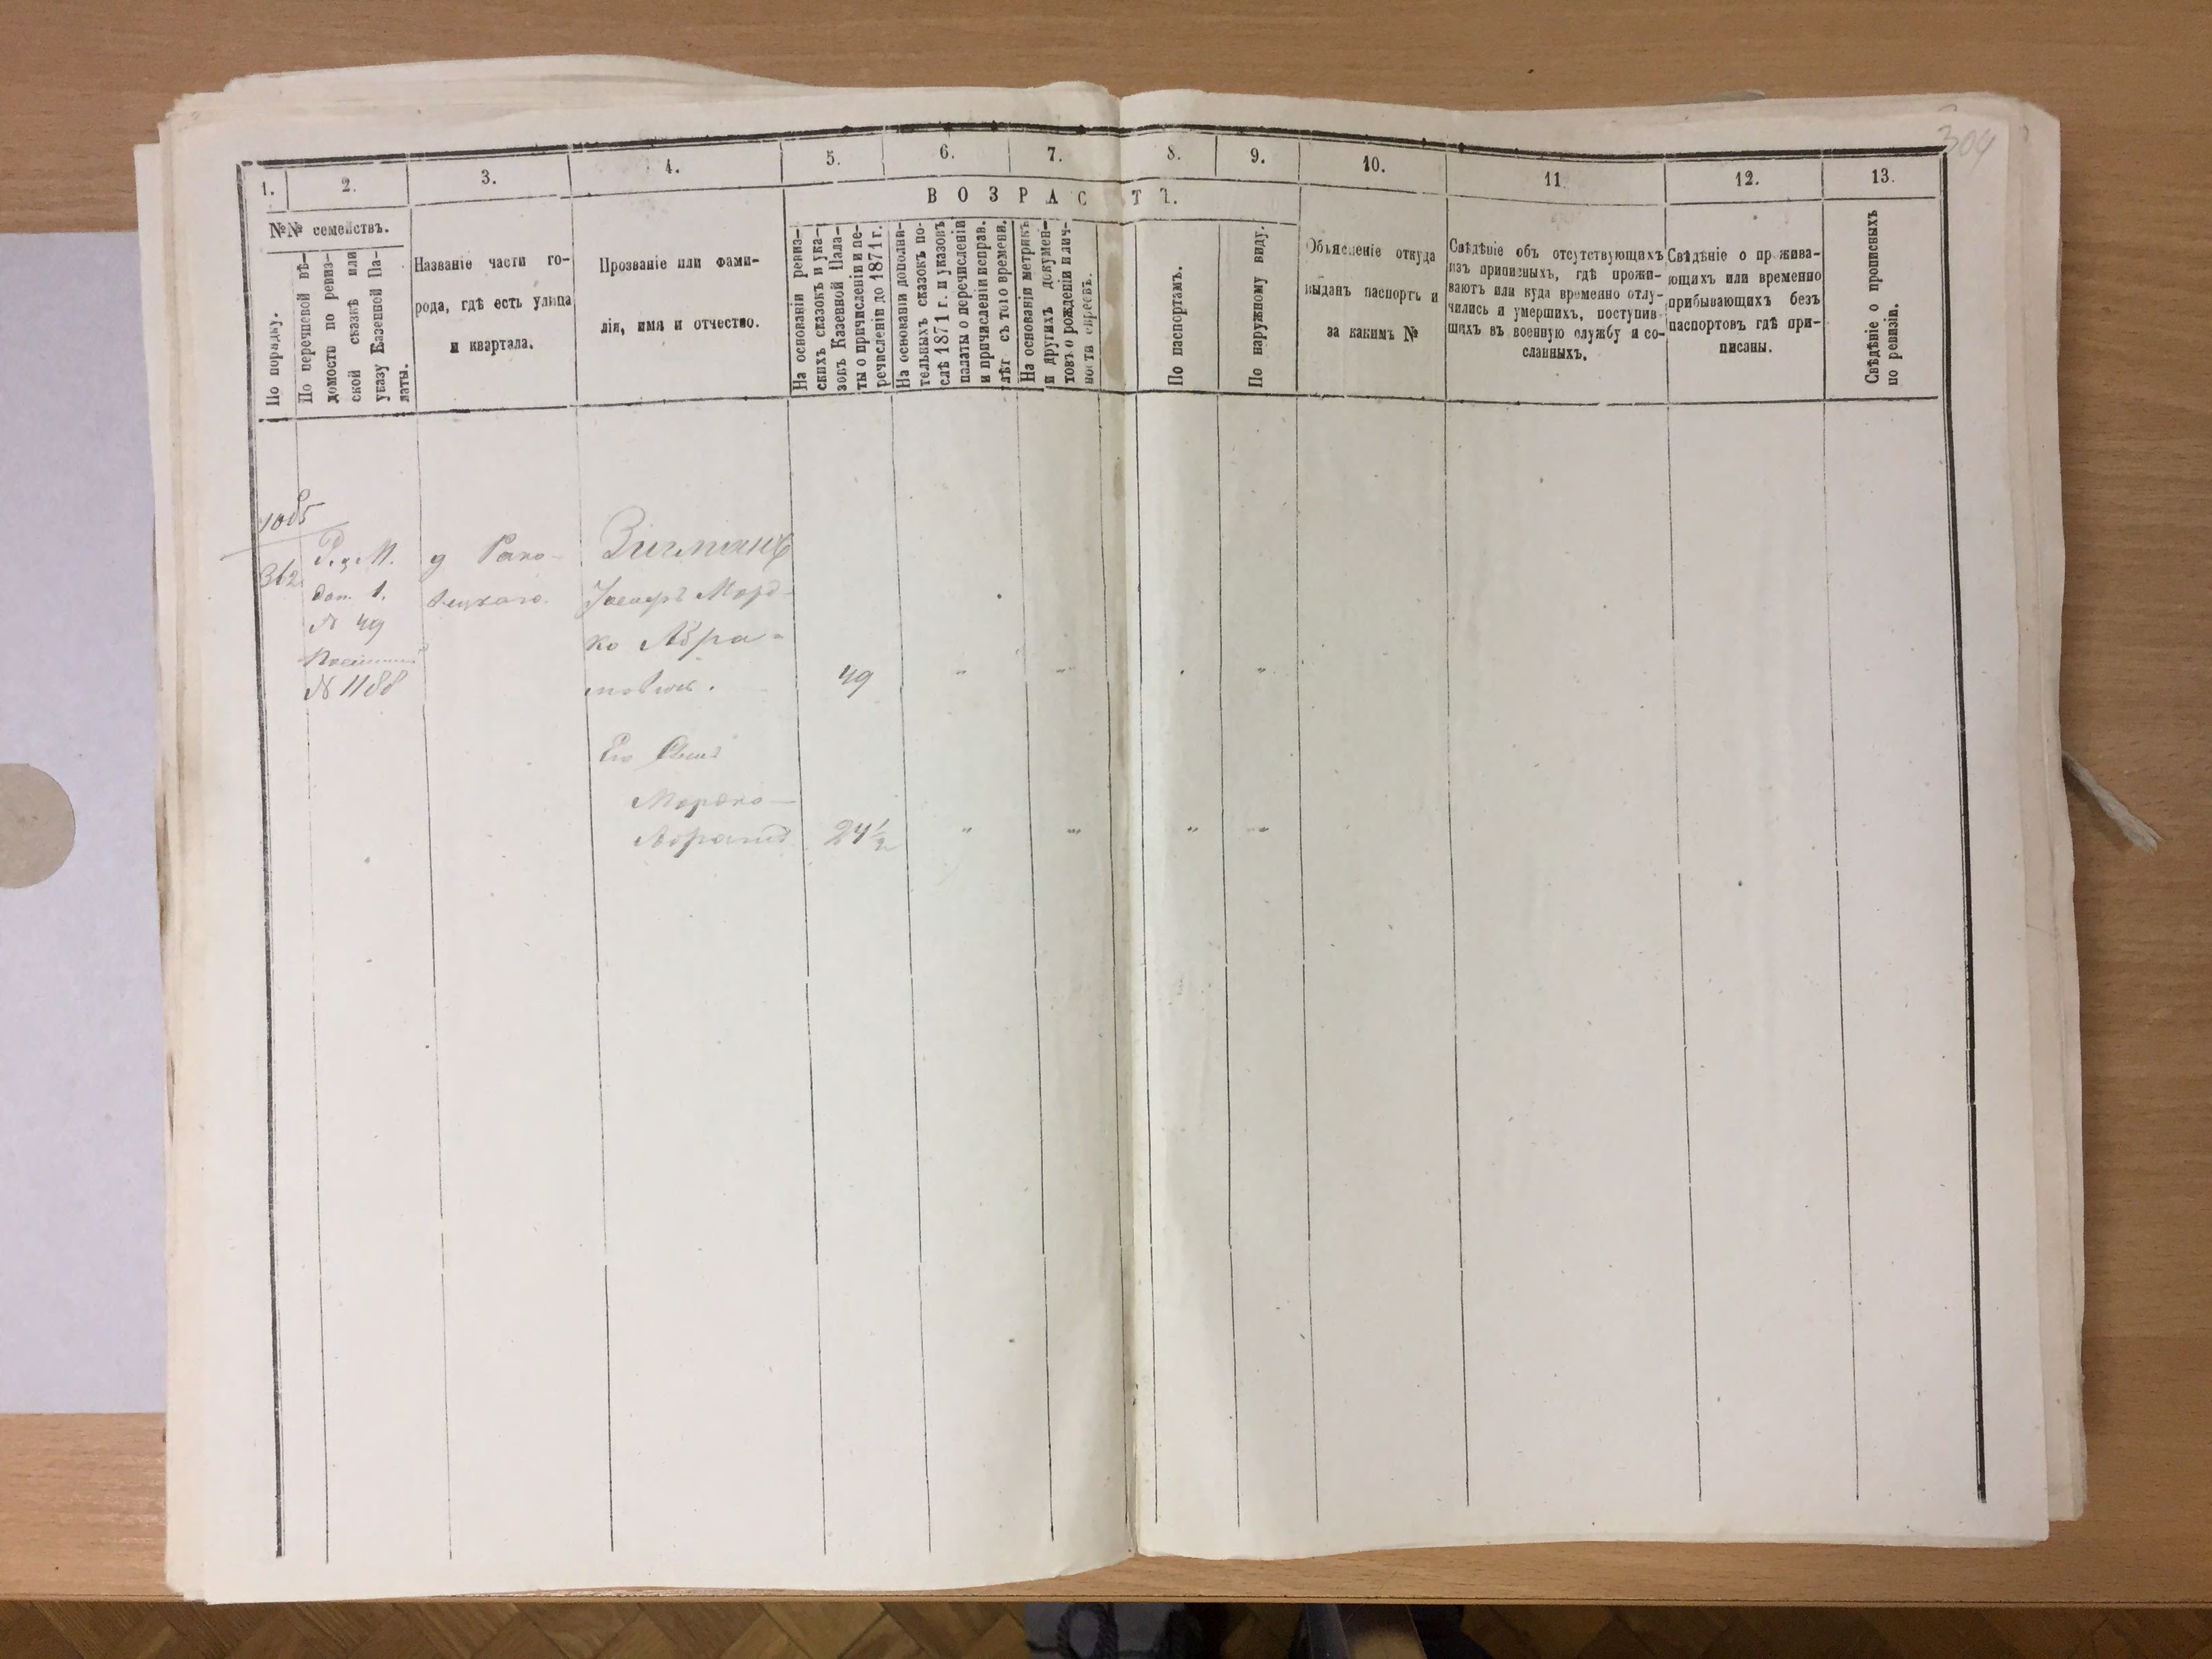 304
1. 2. 3. 4. 5. 6. 7. 8. 9. 10. 11. 12. 13.
№№ семействъ.
По порядку.
По перечневой вѣ-
домость по ревиз-
ской сказкѣ или
указу Казенной Па-
латы.
Названіе части го-
рода, гдѣ есть улица
и квартала.
Прозваніе или фами-
лія, имя и отчество.
ВОЗРАСТЪ.
На основаніи ревиз-
скихъ сказокъ и ука-
зовъ Казенной Пала-
ты о причисленіи и пе-
речисленіи до 1871 г.
На основаніи дополни-
тельныхъ сказокъ по-
слѣ 1871 г. и указовъ
палаты о перечисленіи
и причисленіи исправ.
лѣт съ того времени.
На основаніи метрикъ
и другихъ докумен-
товъ о рожденіи и лич-
ности евреевъ.
По паспортамъ.
По наружному виду.
Объясненіе откуда
выданъ паспортъ и
за какимъ №
Свѣдѣніе объ отсутствующихъ
изъ приписныхъ, гдѣ прожи-
ваютъ или куда временно отлу-
чились и умершихъ, поступив-
шихъ въ военную службу и со-
сланныхъ.
Свѣдѣніе о прожива-
ющихъ или временно
прибывающихъ безъ
паспортовъ гдѣ при-
писаны.
Свѣдѣніе о прописныхъ
по ревизіи.
1085
362
доп. 1.
№ 49
№ 1188
Зигманъ
Морд-
ко Абра-
мовичъ. 49 " " " "
Его Сынъ
Мордко-
Абрамъ 24 1/2 " " " "